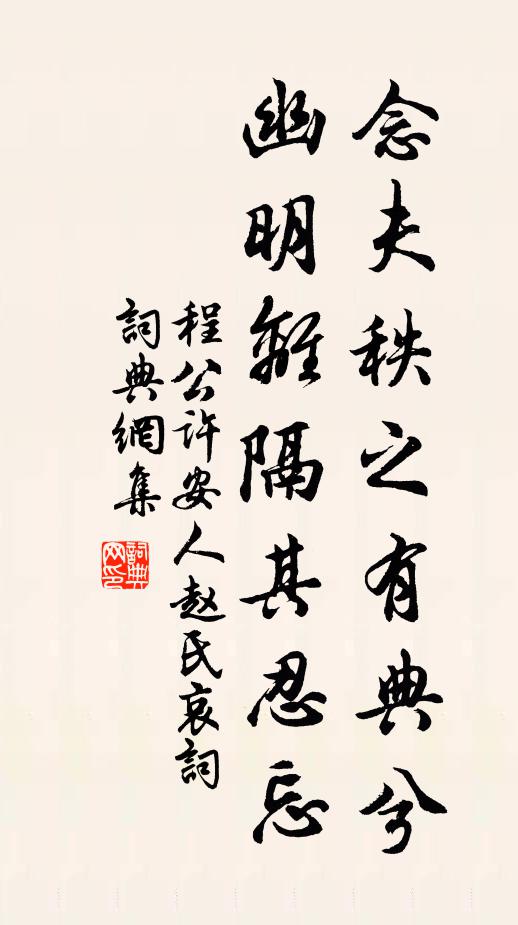 念夫秩之有典兮
幽明離隔其忍忘
程公许安人赵氏哀詞
詞典網集
詞典网印